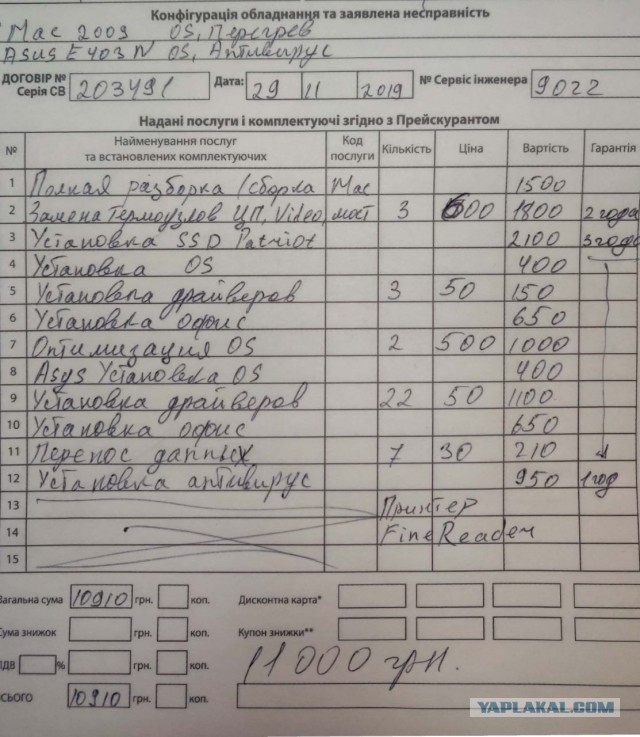 Конфігурація обладнання та заявлена несправність
Mac 2009 OS, Перегрев
Asus E403N OS, Антивирус
ДОГОВІР № Серія СВ 203491 Дата: 29 11 2019 № Сервіс інженера 9022
Надані послуги і комплектуючі згідно з Прейскурантом
№ Найменування послуг та встановлених комплектуючих Код послуги Кількість Ціна Вартість Гарантія
1 Полная разборка/сборка Mac 1500
2 Замена термоузлов ЦП, Video, мост 3 600 1800 2 года
3 Установка SSD Patriot 2100 3 года
4 Установка OS 400
5 Установка драйверов 3 50 150
6 Установка офис 650
7 Оптимизация OS 2 500 1000
8 Asys Установка OS 400
9 Установка драйверов 22 50 1100
10 Установка офис 650
11 Перенос данных 7 30 210
12 Установка антивирус 950 1 год
13 Принтер
14 FineReader
15
Загальна сума 10910 грн. коп. Дисконтна карта*
Сума знижок грн. коп. Купон знижки**
ПДВ % грн. коп. 11000 грн.
ВСЬОГО 10910 грн. коп.
YAPLAKAL.COM